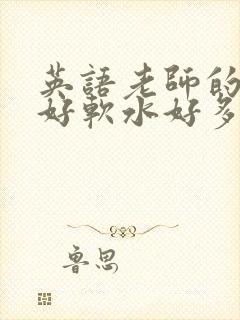 英語老師的
好軟水好多
魯思